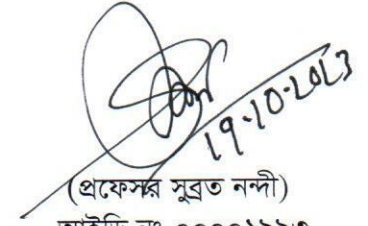 19-10-2023
(প্রফেসর সুব্রত নন্দী)
আইডি নং